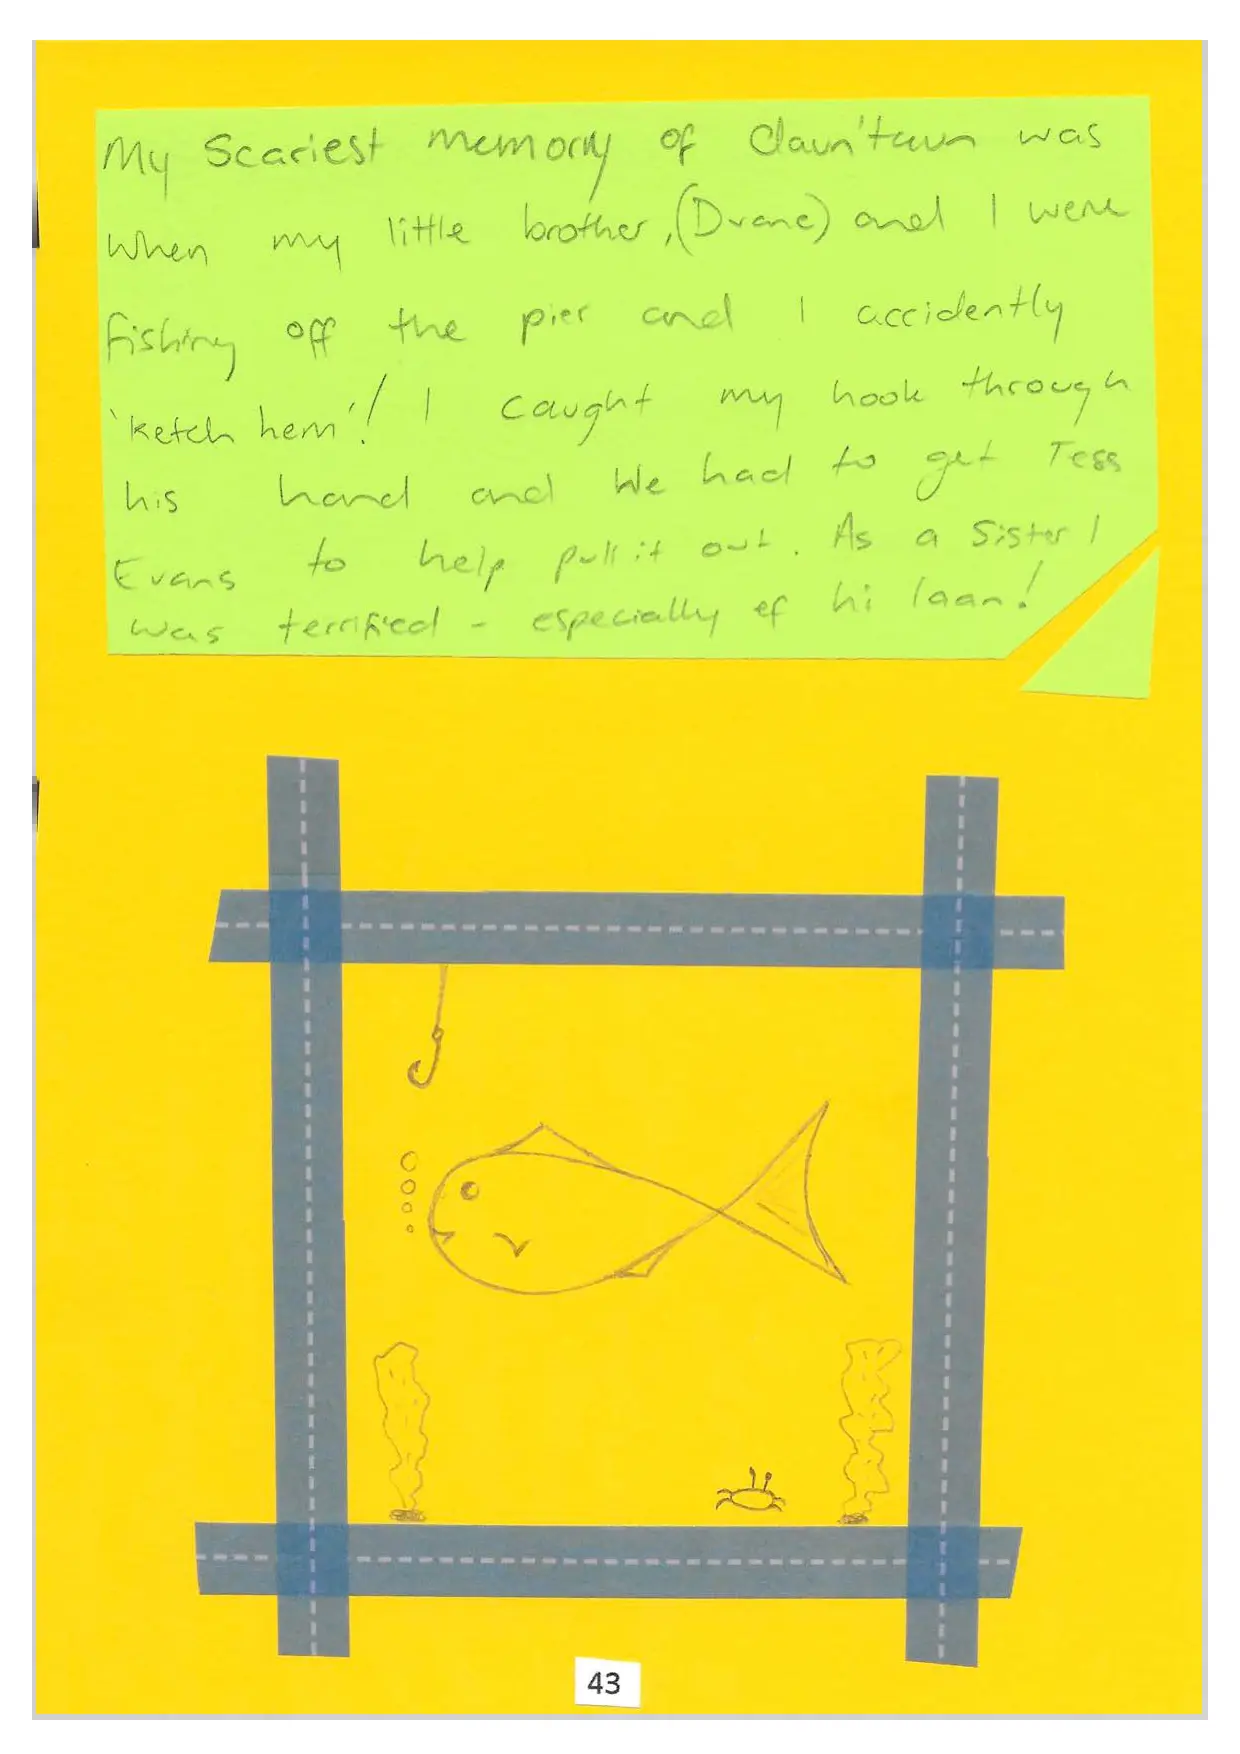 My Scariest memory of daun'taun was
when my little brother, (Drane) and I were
fishing off the pier and I accidently
'ketch hem'! I caught my hook through
his hand and we had to get Tess
Evans to help pull it out. As a Sister I
was terrified - especially ef hi laan!
43